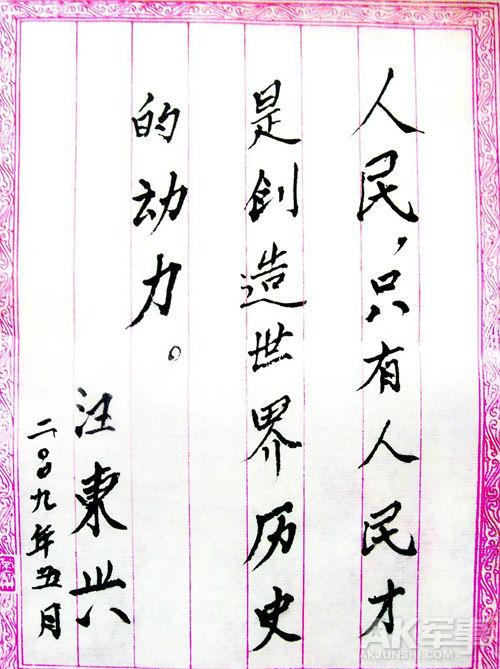 人民，只有人民才
是创造世界历史
的动力。
汪東兴
二〇〇九年五月
AK军事
AKJUNSHI.COM